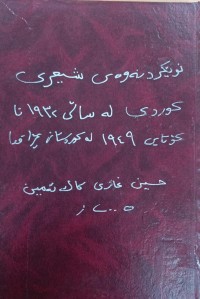 نوێکردنەوەی شیعری
کوردی لە ساڵی ١٩٣٢ تا
کۆتایی ١٩٤٩ لە کوردستانی عێراقدا
حسین غازی کاک ئەمین